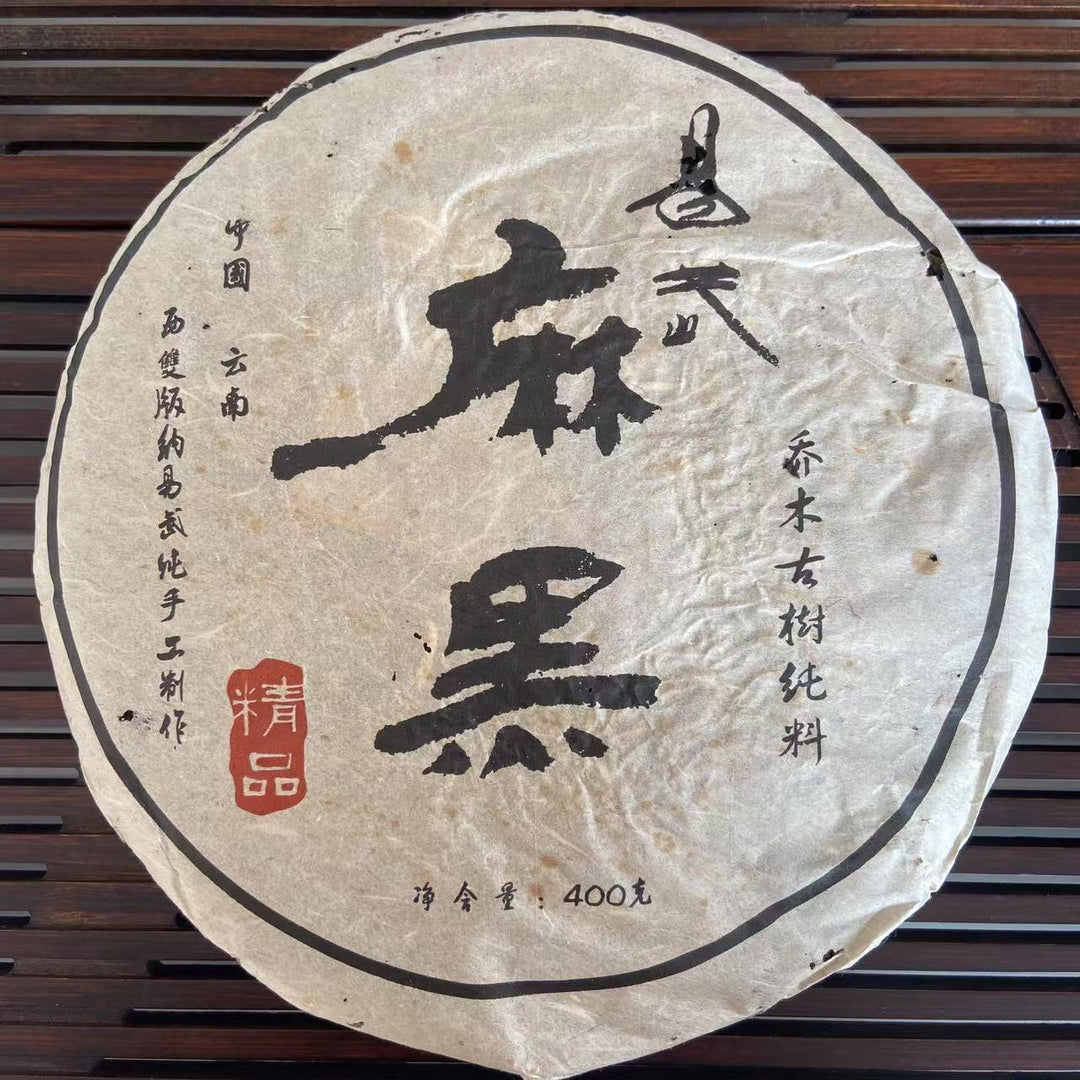 易武
麻黑
乔木古樹纯料
中國 云南
西雙版纳易武纯手工制作
精品
净含量：400克